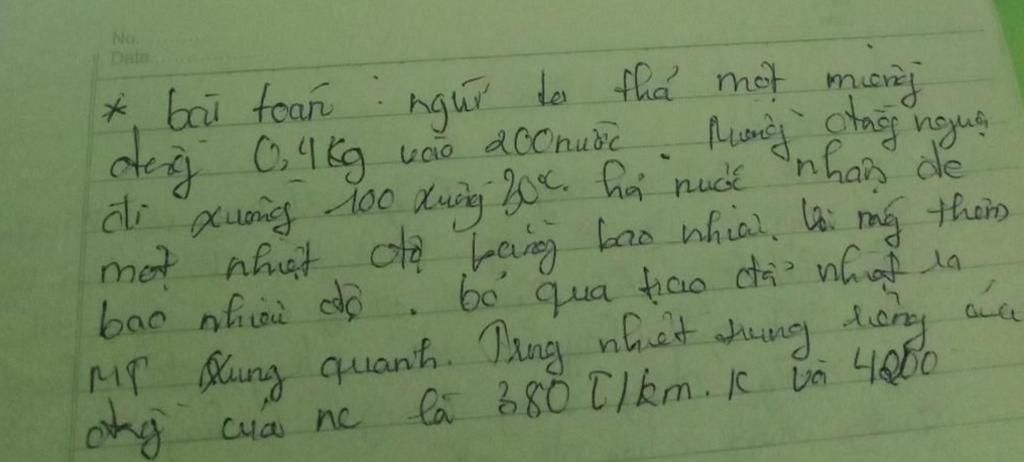 No.
Date
* bài toán : người ta thả một miếng
đồng 0,4kg vào 200 nước. Miếng đồng nguội
đi xuống 100 xuống 30°C. hỏi nước nhận đc
một nhiệt độ bằng bao nhiêu. và nóng thêm
bao nhiêu độ. bỏ qua trao đổi nhiệt ra
MT xung quanh. nhiệt dung riêng của
đồng của nc là 380 J/km.K và 4200